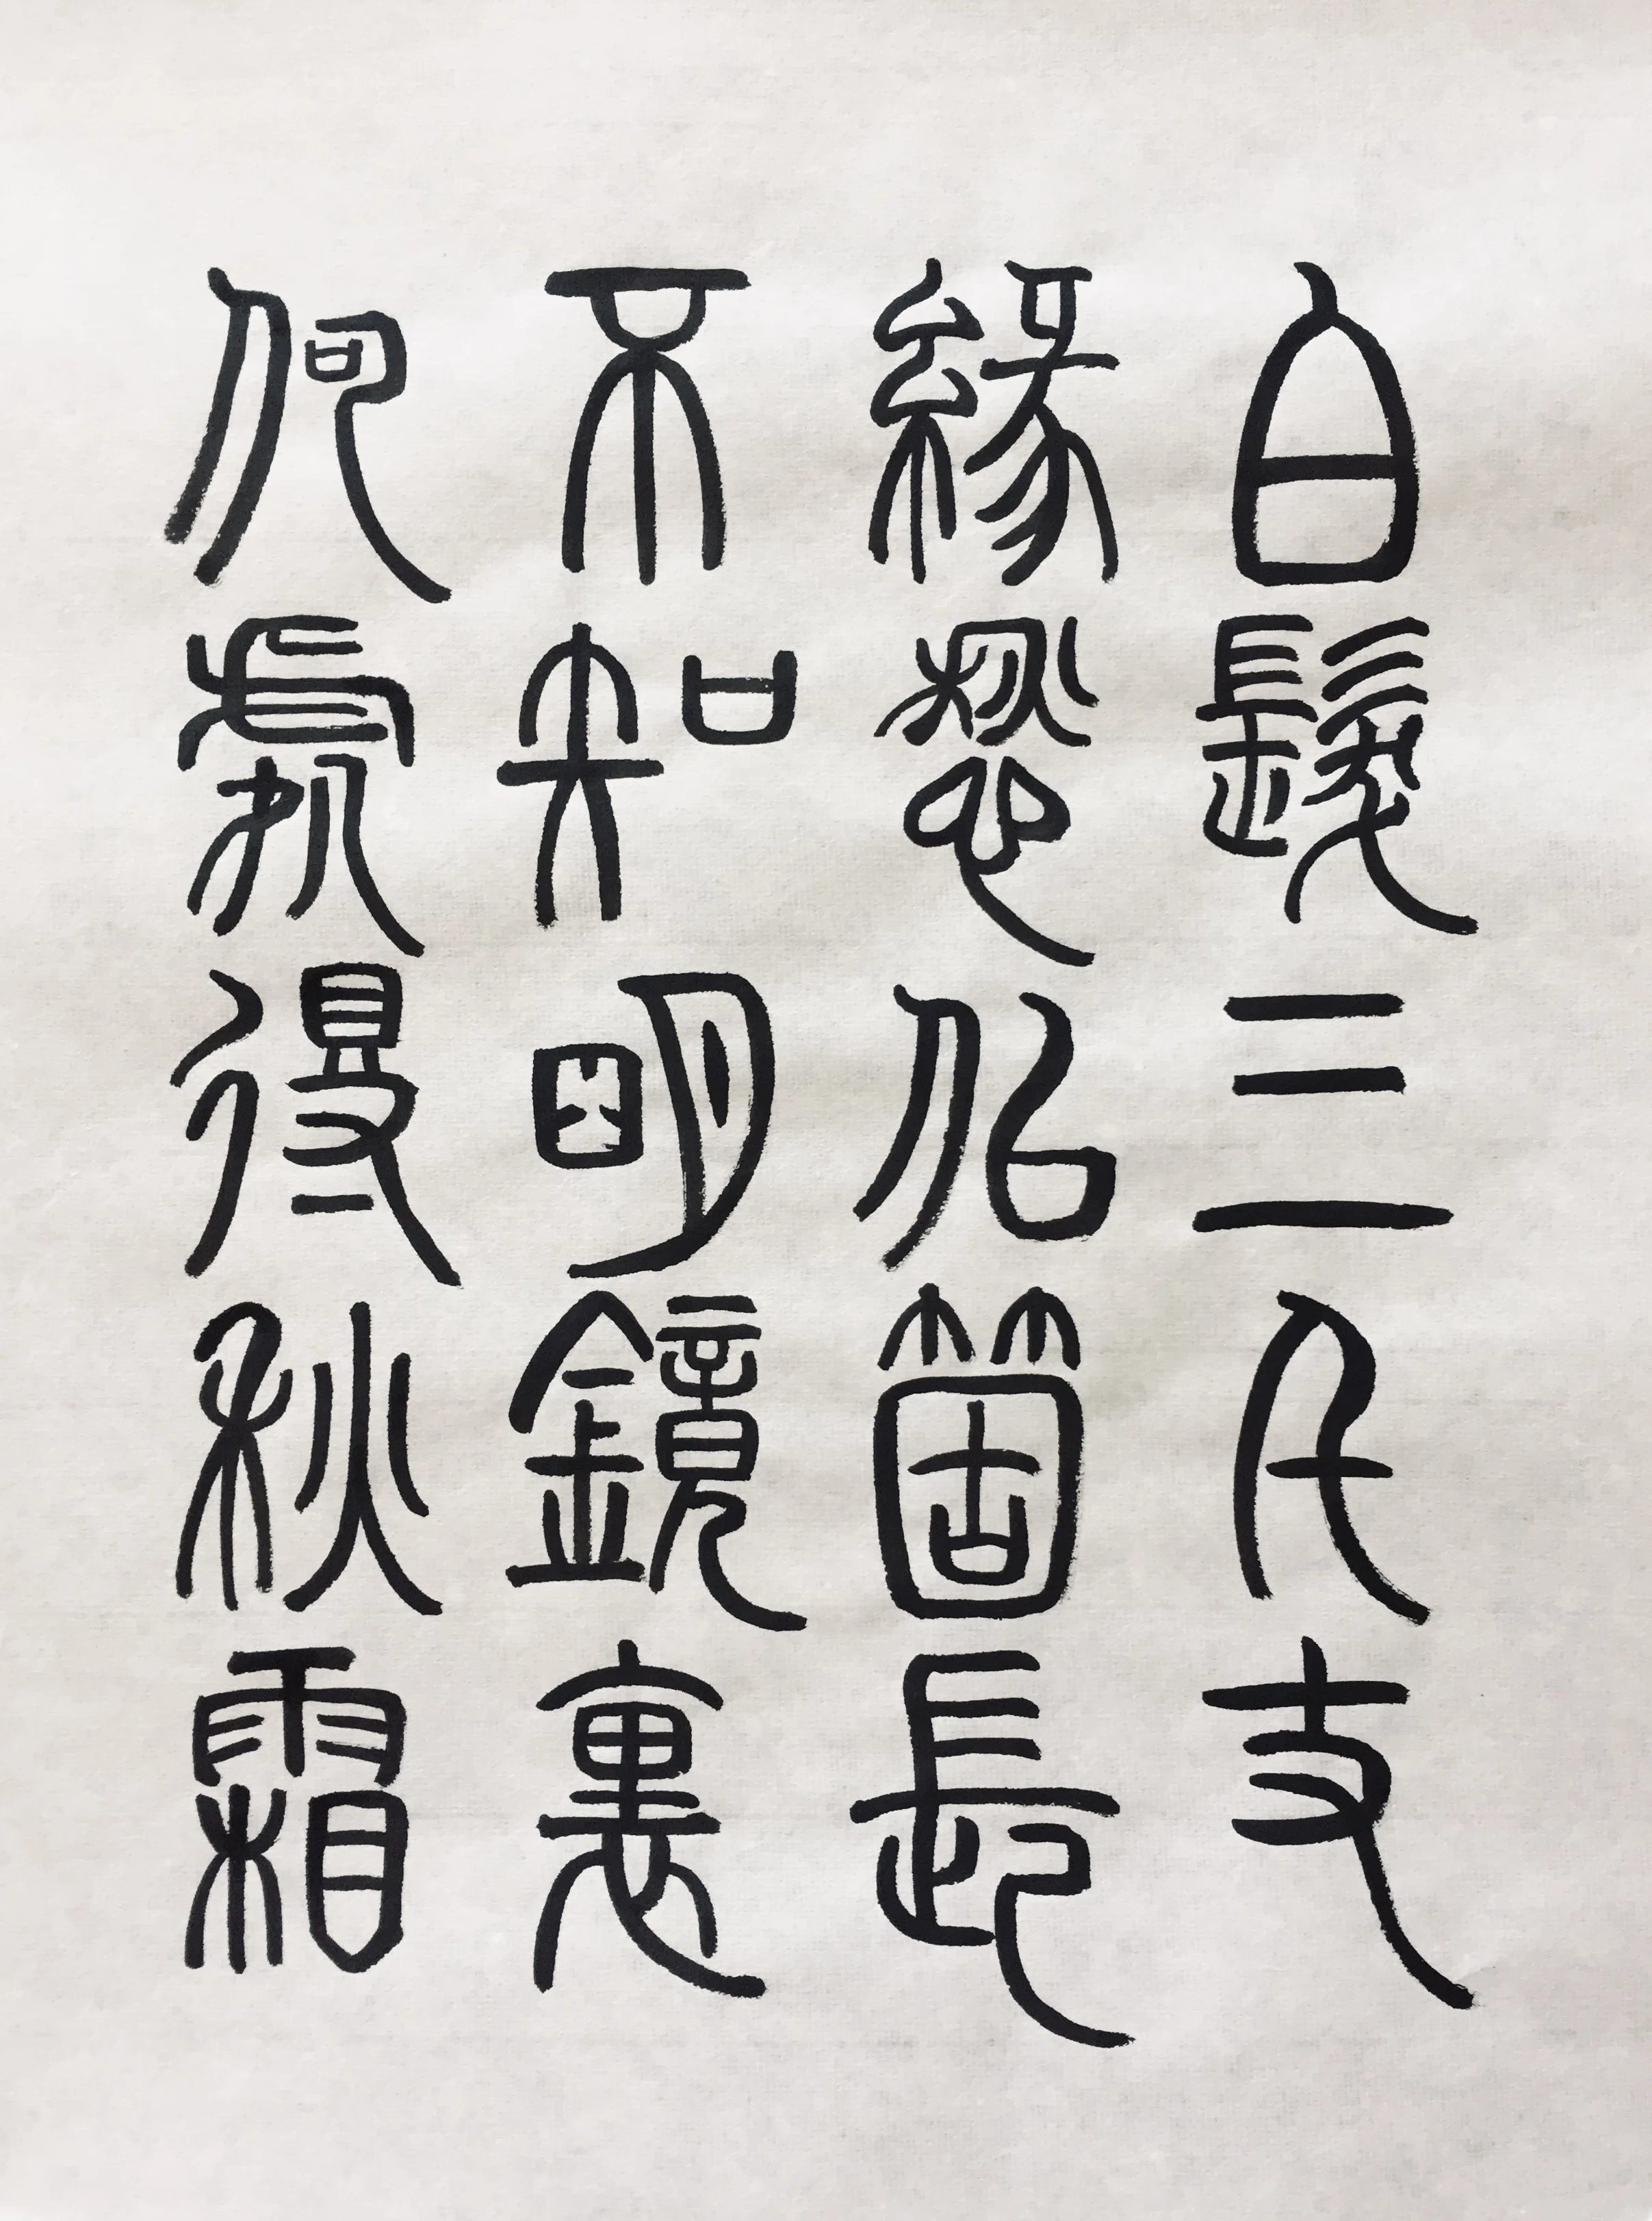 白髮三千丈
緣愁似箇長
不知明鏡裏
何處得秋霜